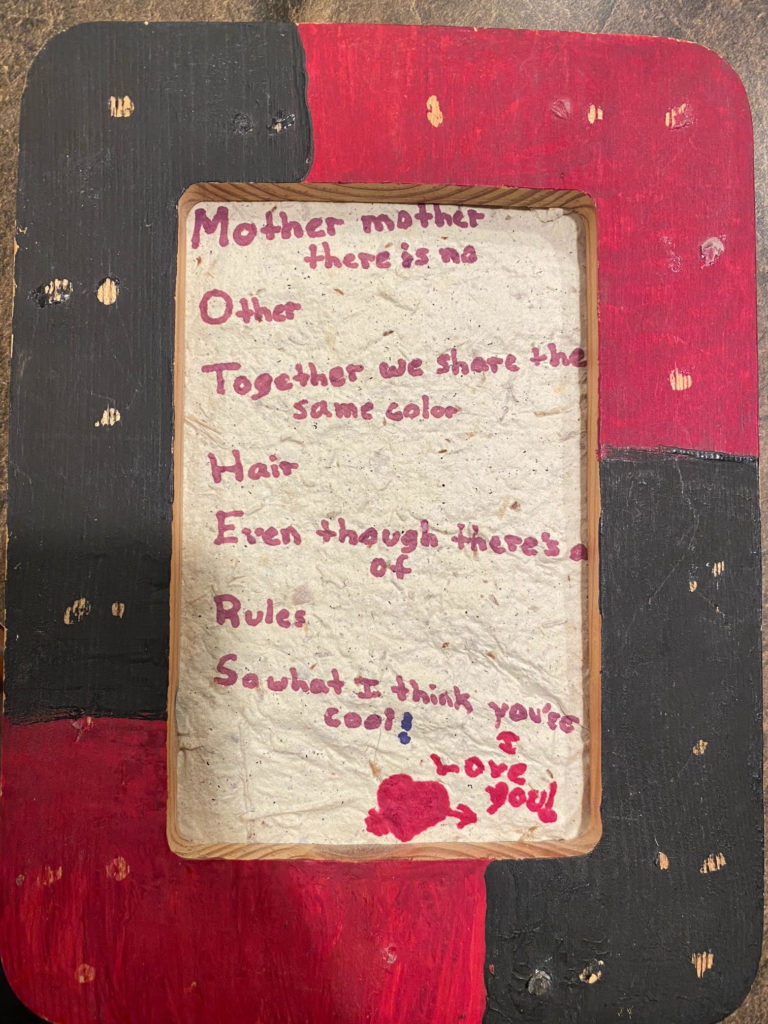 Mother mother
there is no
Other
Together we share the
same color
Hair
Even though there's a
of
Rules
So what I think you're
cool!
I
Love
you!